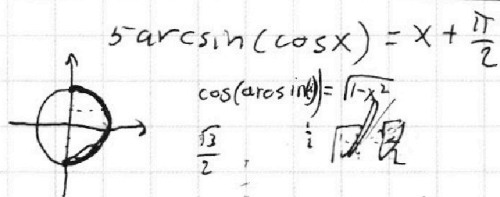 5 arcsin(cos x) = x + π/2
cos(arcsin) = √(1-x²)
√3/2 1/2